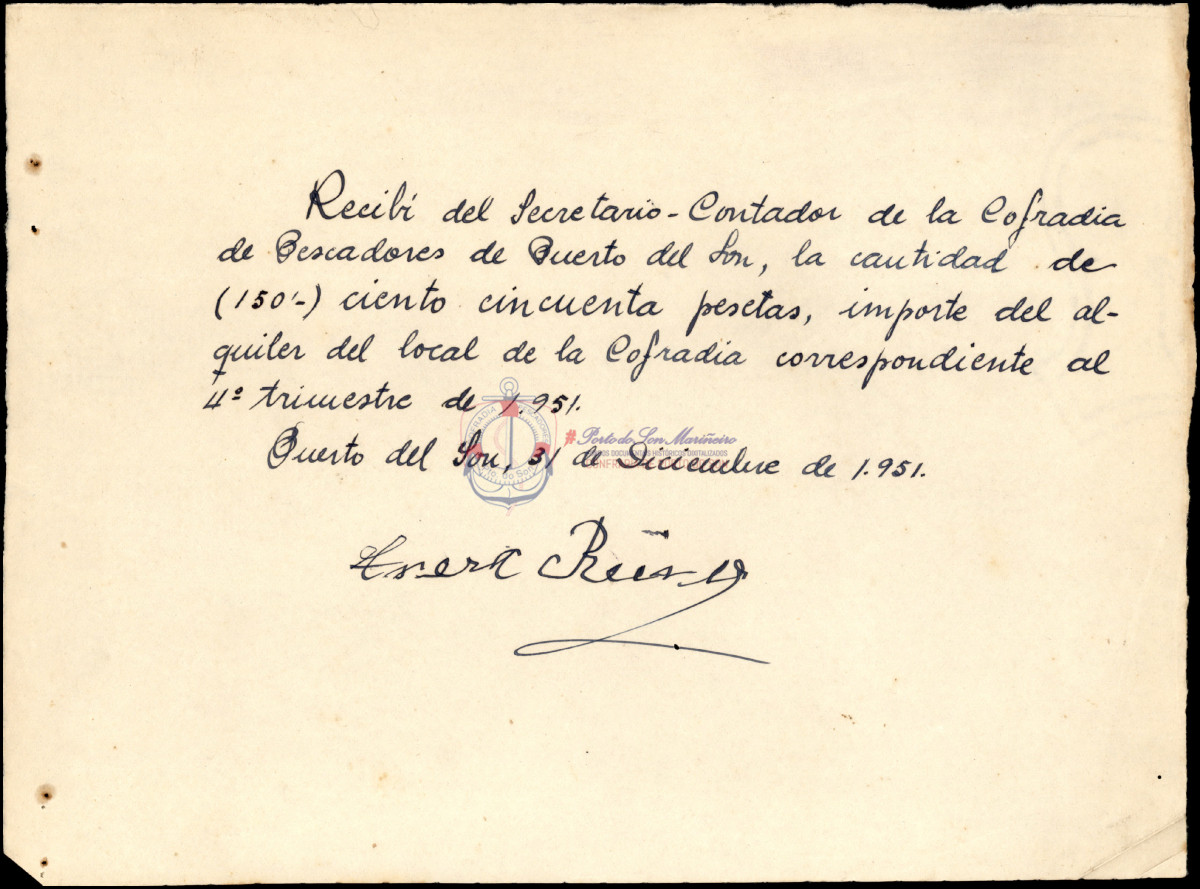 Recibí del Secretario-Contador de la Cofradia
de Pescadores de Puerto del Son, la cantidad de
(150'-) ciento cincuenta pesetas, importe del al-
quiler del local de la Cofradia correspondiente al
4º trimestre de 1.951.
#Porto do Son Mariñeiro
Puerto del Son, 31 de Diciembre de 1.951.